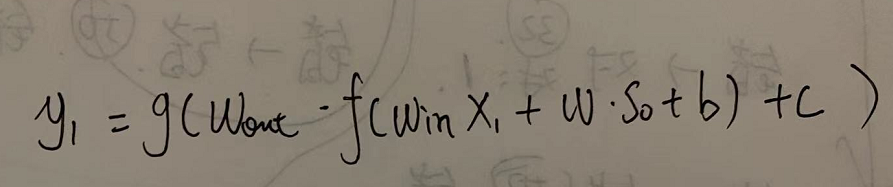 y₁ = g(Wout · f(Win X₁ + W · S₀ + b) + c )